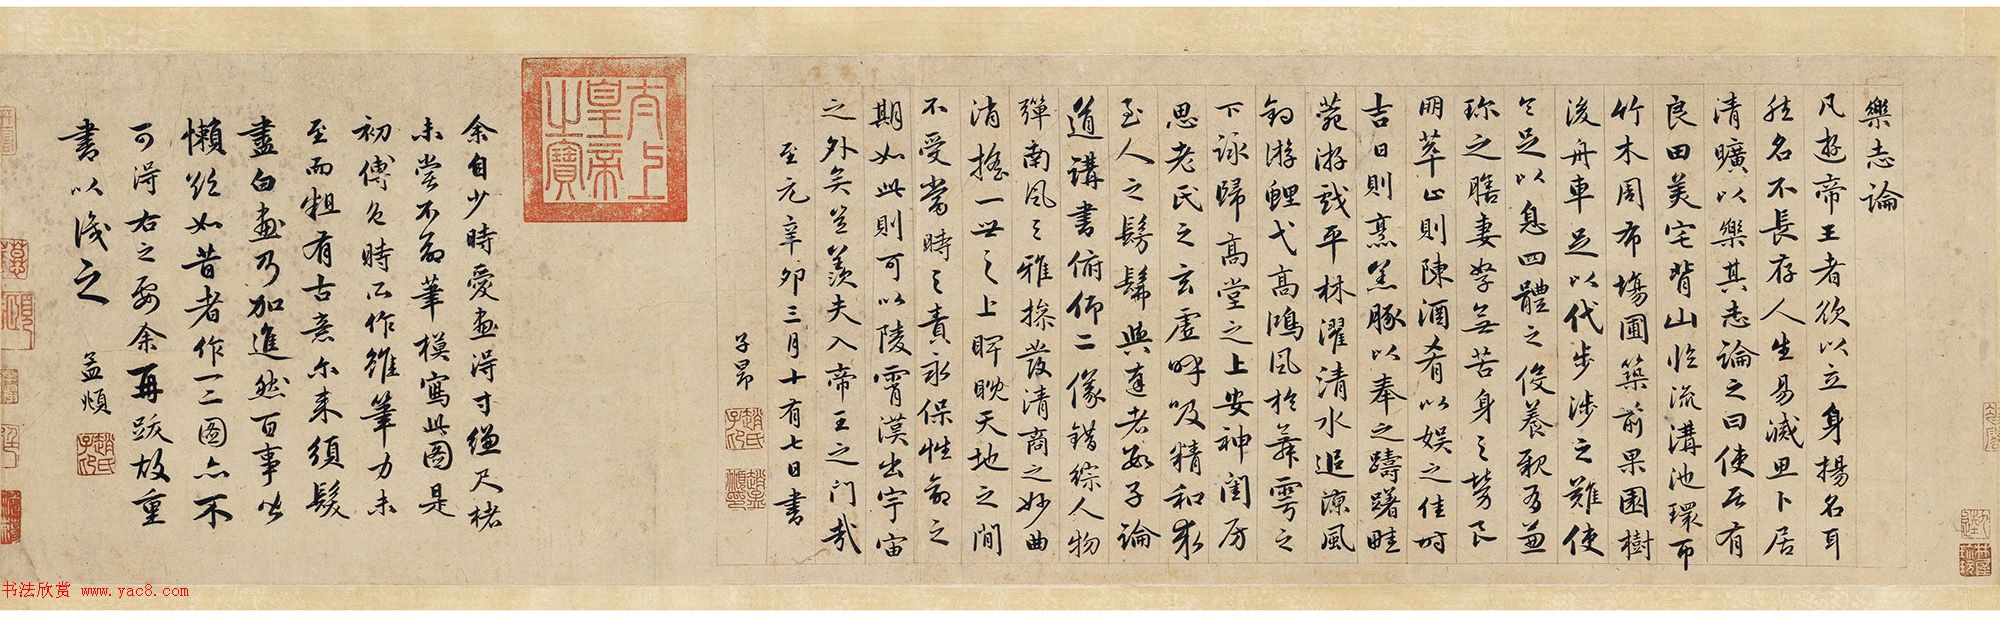 樂志論
凡遊帝王者欲以立身揚名耳
然名不長存人生易滅思卜居
清曠以樂其志論之曰使居有
良田美宅背山臨流溝池環帀
竹木周布場圃築前果園樹
後舟車足以代步涉之難使
令足以息四體之役養親有兼
珍之膳妻孥無苦身之勞良
朋萃止則陳酒肴以娛之佳時
吉日則烹羔豚以奉之躊躇畦
苑游戲平林濯清水追涼風
釣游鯉弋高鴻風於舞雩之
下詠歸高堂之上安神閨房
思老氏之玄虛呼吸精和求
至人之髣髴與達者數子論
道講書俯仰二儀錯綜人物
彈南風之雅操發清商之妙曲
消搖一世之上睥睨天地之間
不受當時之責永保性命之
期如此則可以陵霄漢出宇宙
之外矣豈羨夫入帝王之門哉
至元辛卯三月十有七日書
子昂
趙氏子昂
趙孟頫印
太上皇帝之寶
余自少時愛畫得寸縑尺楮
未嘗不命筆模寫此圖是
初傅色時所作雖筆力未
至而粗有古意尔来須髮
盡白畫乃加進然百事皆
懶欲如昔者作一二圖亦不
可得右之要余再跋故重
書以識之
孟頫
趙氏子昂
书法欣赏 www.yac8.com